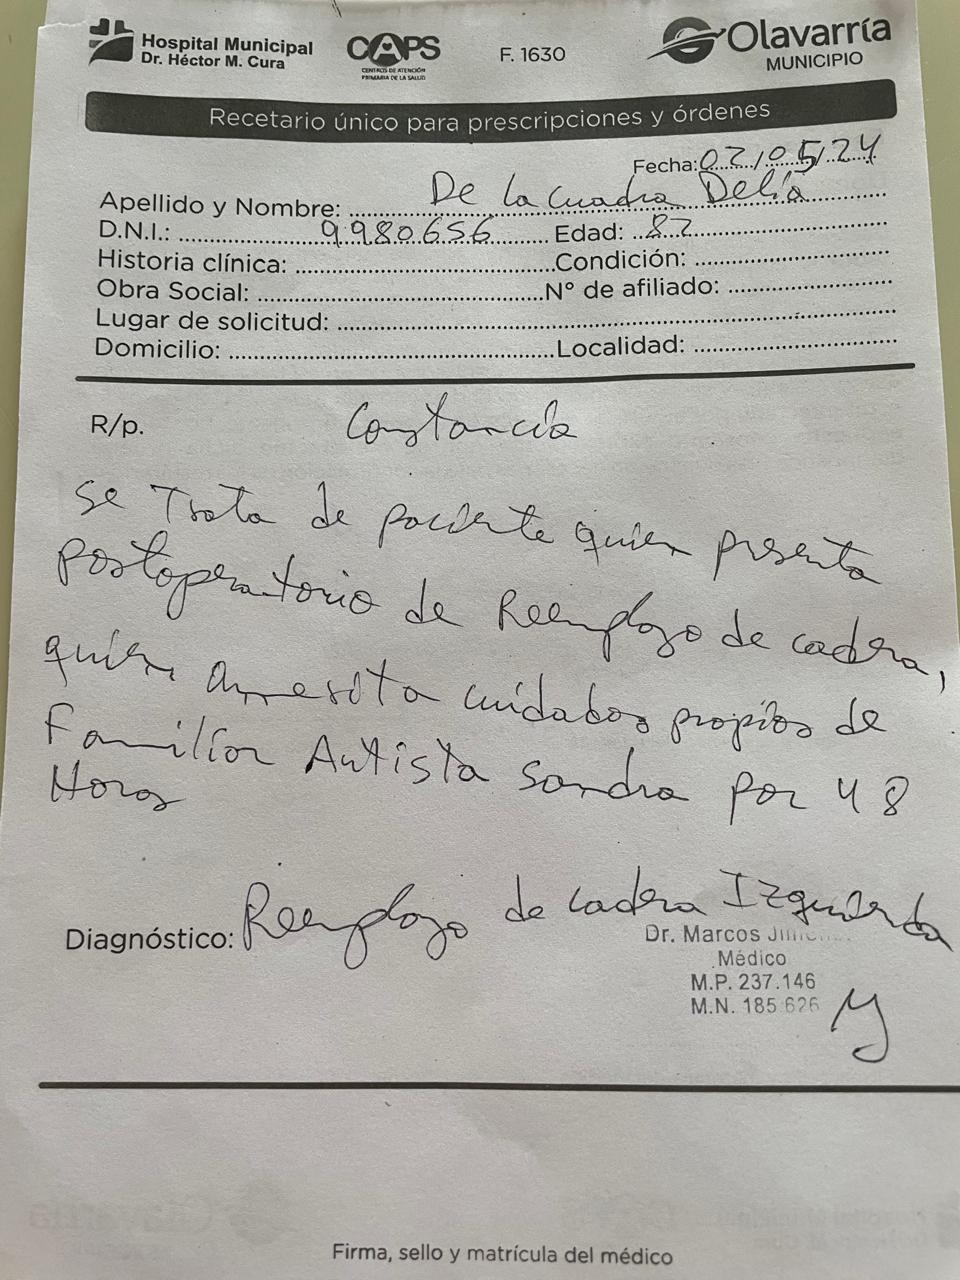 Hospital Municipal
Dr. Héctor M. Cura
CAPS
CENTROS DE ATENCIÓN
PRIMARIA DE LA SALUD
F. 1630
Olavarría
MUNICIPIO
Recetario único para prescripciones y órdenes
Fecha: 02/05/24
Apellido y Nombre: De la cuadra Delia
D.N.I.: 9980656 Edad: 82
Historia clínica: Condición:
Obra Social: N° de afiliado:
Lugar de solicitud:
Domicilio: Localidad:
R/p. Constancia
Se Trata de paciente quien presenta
Postoperatorio de Reemplazo de cadera,
quien amerita cuidados propios de
Familiar Autista Sandra por 48
Horas
Diagnóstico: Reemplazo de cadera Izquierda
Dr. Marcos
Médico
M.P. 237.146
M.N. 185 626
Firma, sello y matrícula del médico